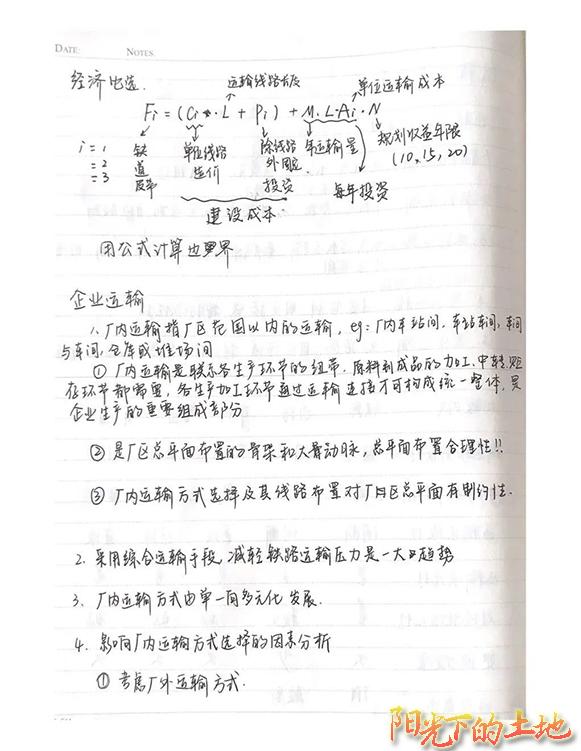 DATE: NOTES:
经济比选
运输线路长度 单位运输成本
Fi = (Ci · L + Pi) + M·L·Ai · N
i = 1 铁 单位线路 除线路 年运输量 规划收益年限
= 2 道 造价 外固定 (10, 15, 20)
= 3 皮带 投资 每年投资
建设成本
用公式计算边界
企业运输
1. 厂内运输指厂区范围以内的运输, eg: 厂内车站间, 车站车间, 车间
与车间, 仓库或堆场间
① 厂内运输是联系各生产环节的纽带. 原料到成品的加工、中转
在环节都需要, 各生产加工环节通过运输连接才可构成统一整体, 是
企业生产的重要组成部分
② 是厂区总平面布置的骨架和大骨动脉, 总平面布置合理性!!
③ 厂内运输方式选择及其线路布置对厂区总平面有制约性.
2. 采用综合运输手段, 减轻铁路运输压力是一大趋势
3. 厂内运输方式由单一向多元化发展.
4. 影响厂内运输方式选择的因素分析
① 考虑厂外运输方式.
阳光下的土地